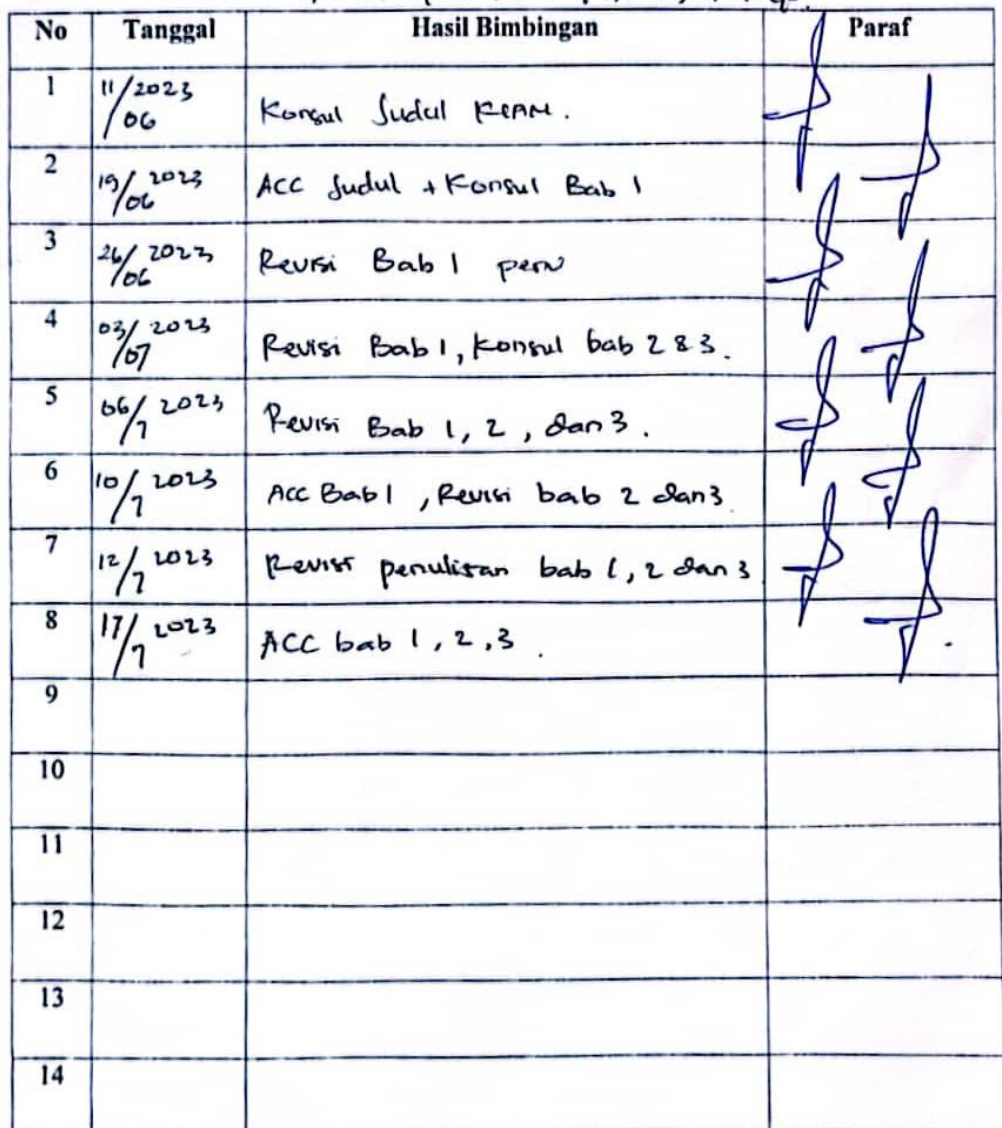 No Tanggal Hasil Bimbingan Paraf
1 11/06 2023 Konsul Judul
2 19/06 2023 ACC Judul + Konsul Bab 1
3 26/06 2023 Revisi Bab 1
4 03/07 2023 Revisi Bab 1, Konsul bab 2 & 3.
5 06/7 2023 Revisi Bab 1, 2, dan 3.
6 10/7 2023 Acc Bab 1, Revisi bab 2 dan 3
7 12/7 2023 Revisi penulisan bab 1, 2 dan 3
8 17/7 2023 ACC bab 1, 2, 3.
9
10
11
12
13
14